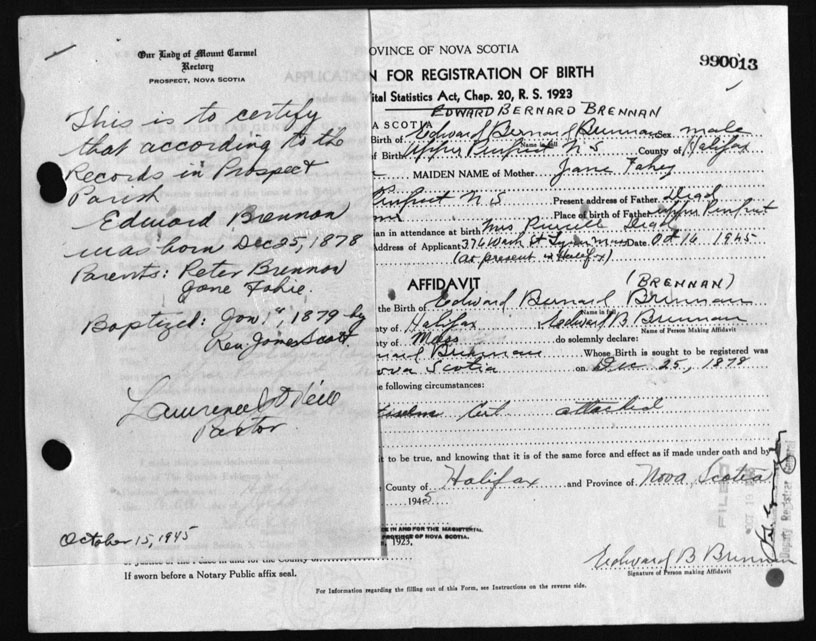 Our Lady of Mount Carmel
Rectory
PROSPECT, NOVA SCOTIA
This is to certify
that according to the
Records in Prospect
Parish
Edward Brennan
was born Dec 25, 1878
Parents: Peter Brennan
Jane Fahie.
Baptized: Jan 1st, 1879 by
Rev. James Scott
Pastor
October 15, 1945
OVINCE OF NOVA SCOTIA
990013
N FOR REGISTRATION OF BIRTH
ital Statistics Act, Chap. 20, R. S. 1923
EDWARD BERNARD BRENNAN
A SCOTIA
Birth of Edward Bernard Brennan Sex male
Name in full
of Birth Upper Prospect N S County of Halifax
MAIDEN NAME of Mother Jane Fahey
Prospect N. S Present address of Father Dead
Place of birth of Father Upper Prospect
ian in attendance at birth Mrs Purcell Dead
Address of Applicant 374 Wash St Date Oct 16 1945
(At present in Halifax)
AFFIDAVIT
(BRENNAN)
the Birth of Edward Bernard Brennan
Name in full
ty of Halifax Edward B Brennan
Name of Person Making Affidavit
ty of Mass do solemnly declare:
Bernard Brennan Whose Birth is sought to be registered was
Nova Scotia on Dec 25, 1878
e following circumstances:
Cert attached
it to be true, and knowing that it is of the same force and effect as if made under oath and by
County of Halifax and Province of Nova Scotia
1945
CE IN AND FOR THE MAGISTERIAL
PROVINCE OF NOVA SCOTIA.
, 1923.
FILED
Deputy Registrar General
Edward B Brennan
Signature of Person making Affidavit
of Justice of the Peace in and for the County of
If sworn before a Notary Public affix seal.
For Information regarding the filling out of this Form, see Instructions on the reverse side.